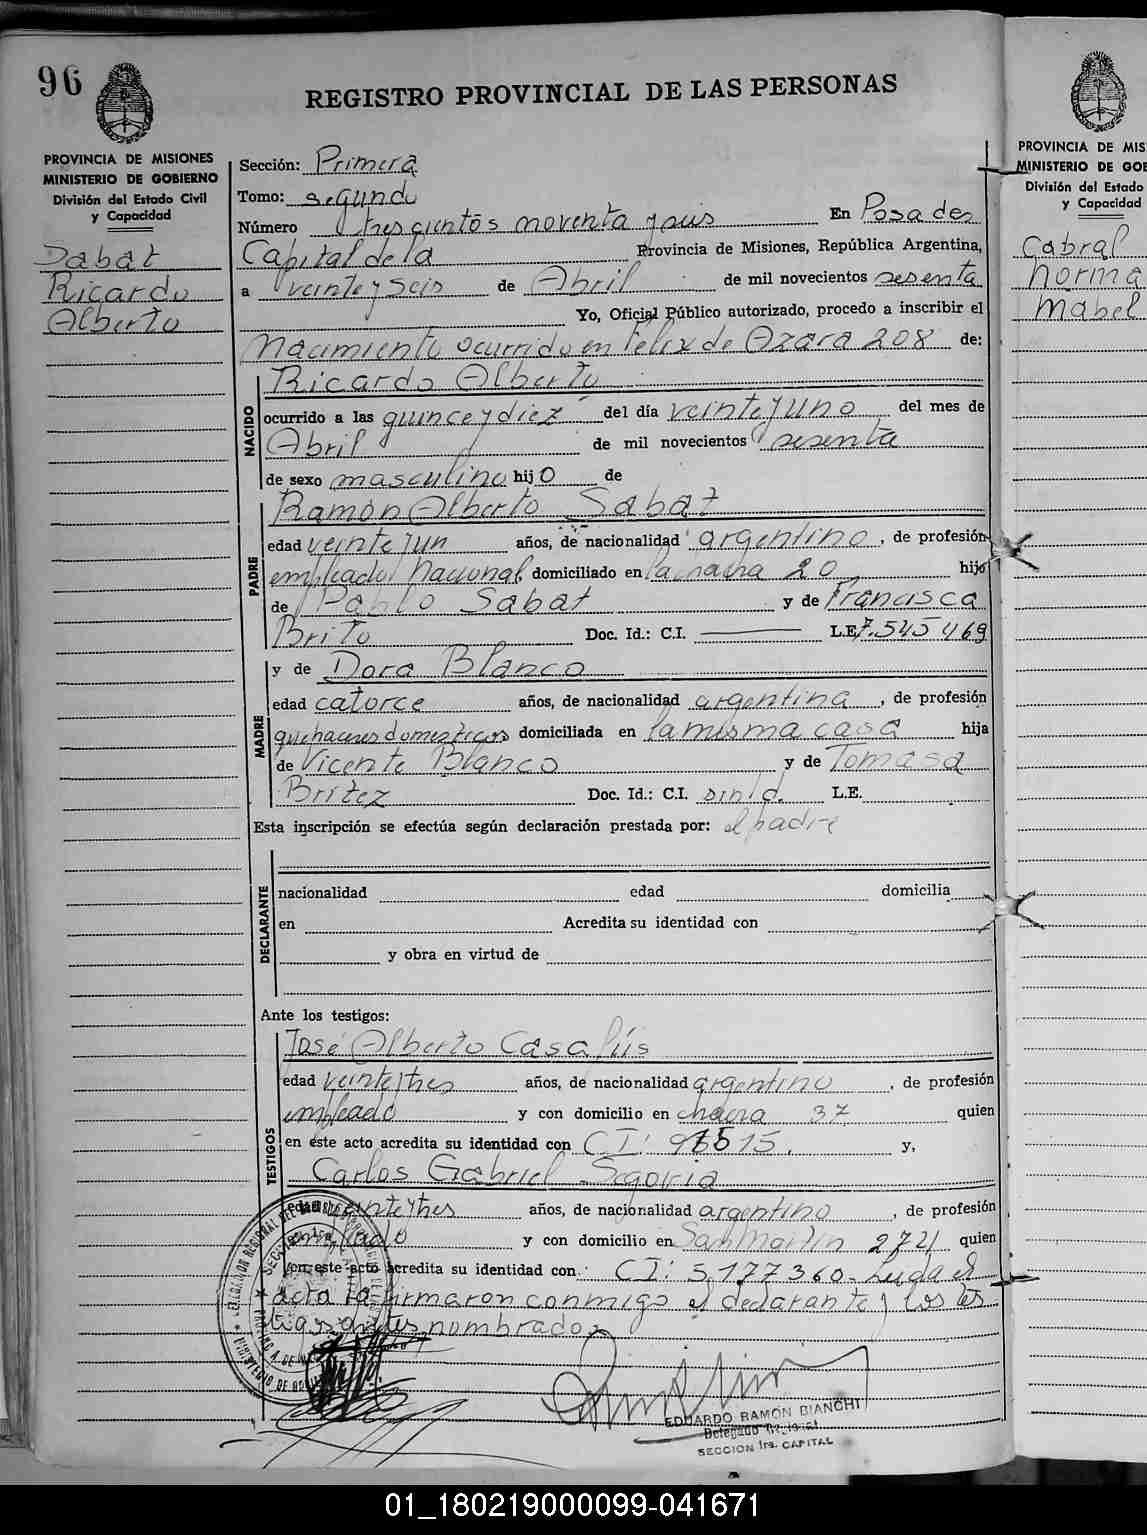 96
REGISTRO PROVINCIAL DE LAS PERSONAS
PROVINCIA DE MISIONES
MINISTERIO DE GOBIERNO
División del Estado Civil
y Capacidad
Sabat
Ricardo
Alberto
Sección: Primera
Tomo: segundo
Número trescientos noventa y seis En Posadas
Capital de la Provincia de Misiones, República Argentina,
a veinte y seis de Abril de mil novecientos sesenta
Yo, Oficial Público autorizado, procedo a inscribir el
Nacimiento ocurrido en Félix de Azara 208 de:
NACIDO
Ricardo Alberto
ocurrido a las quince y diez del día veinte y uno del mes de
Abril de mil novecientos sesenta
de sexo masculino hijo de
PADRE
Ramón Alberto Sabat
edad veinte y un años, de nacionalidad argentino, de profesión
empleado Nacional domiciliado en la chacra 20 hijo
de Pablo Sabat y de Francisca
Brito Doc. Id.: C.I. L.E. 7.545469
MADRE
y de Dora Blanco
edad catorce años, de nacionalidad argentina, de profesión
quehaceres domesticos domiciliada en la misma casa hija
de Vicente Blanco y de Tomasa
Britez Doc. Id.: C.I. sin/d. L.E.
Esta inscripción se efectúa según declaración prestada por: el padre
DECLARANTE
nacionalidad edad domicilia
en Acredita su identidad con
y obra en virtud de
Ante los testigos:
TESTIGOS
José Alberto Casafús
edad veinte y tres años, de nacionalidad argentino, de profesión
empleado y con domicilio en chacra 37 quien
en este acto acredita su identidad con C I: y,
Carlos Gabriel Segovia
edad veinte y tres años, de nacionalidad argentino, de profesión
empleado y con domicilio en San Martín quien
en este acto acredita su identidad con C I: 5.177360- Leida el
acta la firmaron conmigo el declarante y los tes
tigos antes nombrados
EDUARDO RAMON BIANCHI
Delegado Regional
SECCION 1ra. CAPITAL
PROVINCIA DE MIS
MINISTERIO DE GOB
División del Estado
y Capacidad
Cabral
Norma
Mabel
01_180219000099-041671